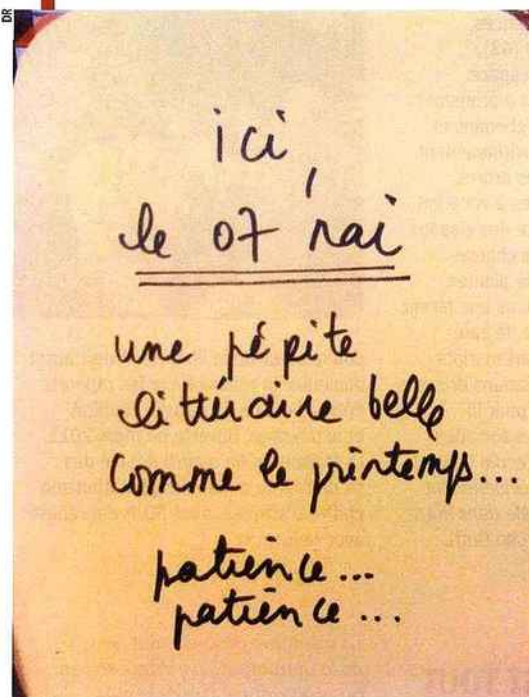 DR
ici,
le 07 mai
une pépite
littéraire belle
comme le printemps...
patience...
patience...